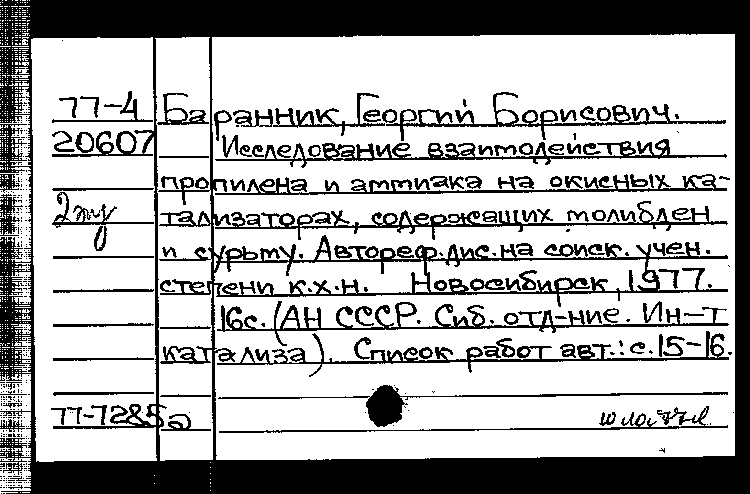 77-4 Баранник, Георгий Борисович.
20607 Исследование взаимодействия
пропилена и аммиака на окисных ка-
тализаторах, содержащих молибден
и сурьму. Автореф.дис.на соиск. учен.
степени к.х.н. Новосибирск, 1977.
16с. (АН СССР. Сиб. отд-ние. Ин-т
катализа). Список работ авт.: с.15-16.
77-7285а